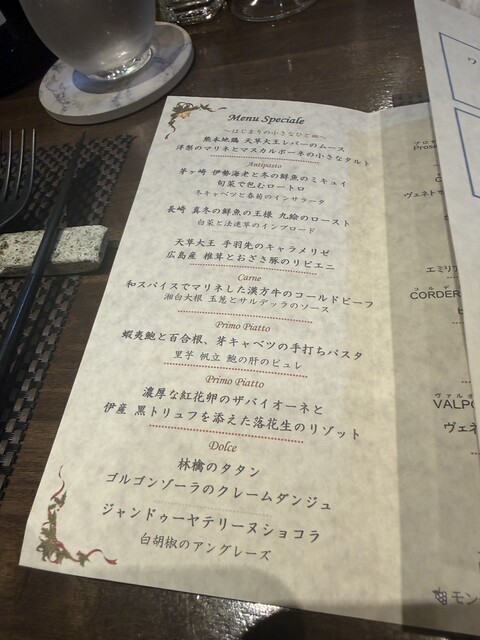 Menu Speciale
~はじまりの小さなひと皿~
熊本地鶏 天草大王レバーのムース
洋梨のマリネとマスカルポーネの小さなタルト
Antipasto
茅ヶ崎 伊勢海老と冬の鮮魚のミキュイ
旬菜で包むロートロ
冬キャベツと春菊のインサラータ
長崎 真冬の鮮魚の王様 九絵のロースト
白菜と法蓮草のインブロード
天草大王 手羽先のキャラメリゼ
広島産 椎茸とおざき豚のリピエニ
Carne
和スパイスでマリネした漢方牛のコールドビーフ
湘白大根 玉葱とサルデッラのソース
Primo Piatto
蝦夷鮑と百合根、芽キャベツの手打ちパスタ
里芋 帆立 鮑の肝のピュレ
Primo Piatto
濃厚な紅花卵のザバイオーネと
伊産 黒トリュフを添えた落花生のリゾット
Dolce
林檎のタタン
ゴルゴンゾーラのクレームダンジュ
ジャンドゥーヤテリーヌショコラ
白胡椒のアングレーズ
プロセ
Prose
ヴェネト
エミリア
CORDER
ヴァル
VALPO
ヴェネ
モン